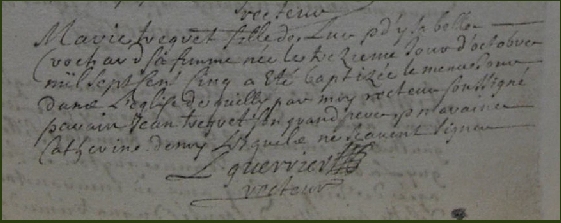 recteur
Marie treguet fille de Luc p dysabelle
Crochard sa femme nee le trezeme Jour d'octobre
mil sept sent Cinq a Eté baptizée le meme Jour
dans L'eglise de par moy recteur soussigné
parain Jean treguet son grand pere maraine
Catherine demy Lesquels ne scavent signer
L guerrier
recteur